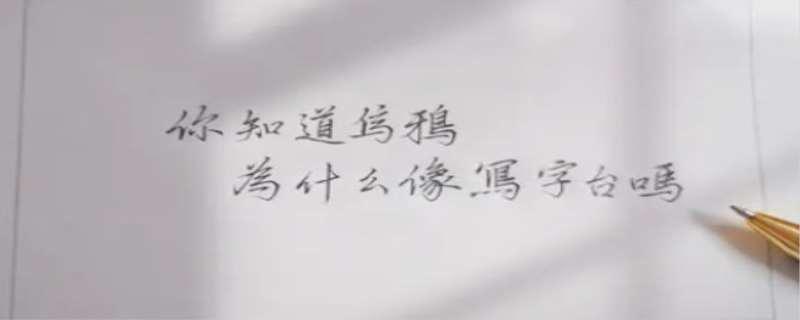 你知道烏鴉
為什么像寫字台嗎